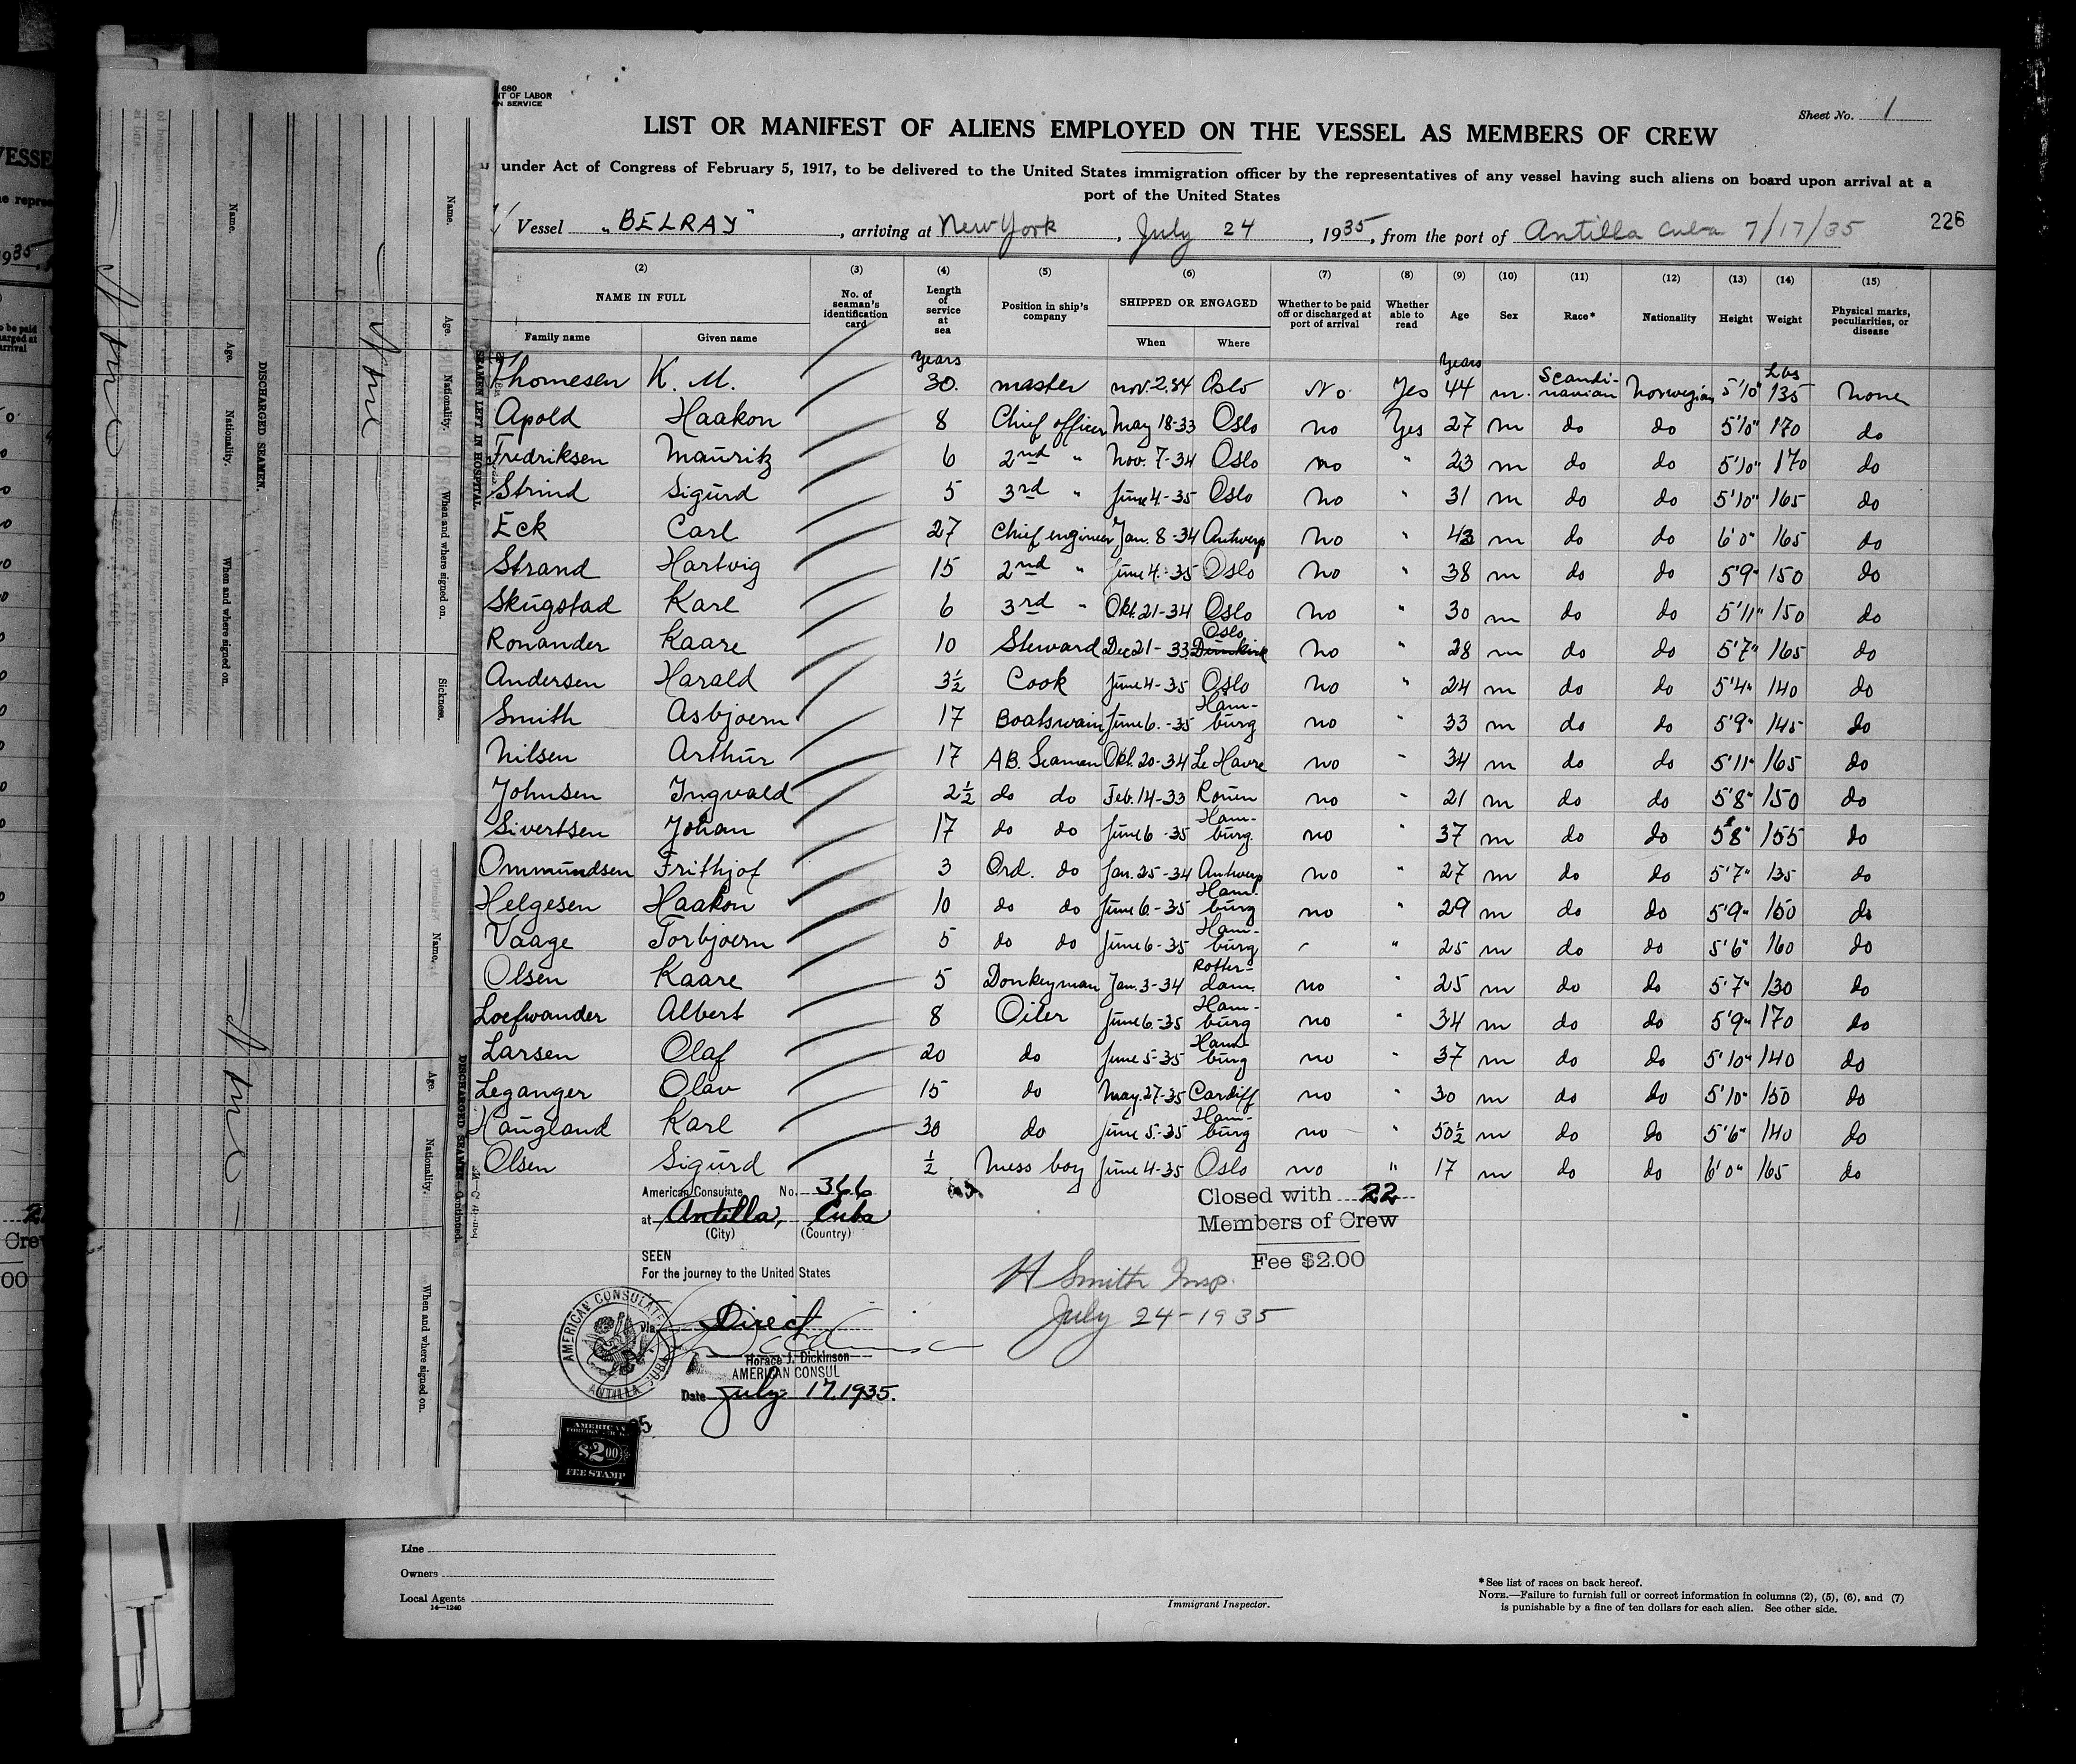 680
NT OF LABOR
N SERVICE
Sheet No. 1
LIST OR MANIFEST OF ALIENS EMPLOYED ON THE VESSEL AS MEMBERS OF CREW
under Act of Congress of February 5, 1917, to be delivered to the United States immigration officer by the representatives of any vessel having such aliens on board upon arrival at a
port of the United States
Vessel "BELRAY", arriving at New York, July 24, 1935, from the port of Antilla Cuba 7/17/35
226
(2) (3) (4) (5) (6) (7) (8) (9) (10) (11) (12) (13) (14) (15)
NAME IN FULL Family name Given name No. of seaman's identification card Length of service at sea Position in ship's company SHIPPED OR ENGAGED When Where Whether to be paid off or discharged at port of arrival Whether able to read Age Sex Race* Nationality Height Weight Physical marks, peculiarities, or disease
years years Lbs
Thomesen K. M. 30. master nov. 2.34 Oslo No Yes 44 m. Scandinavian Norwegian 5'10" 135 none
Apold Haakon 8 Chief officer May 18-33 Oslo no Yes 27 m do do 5'10" 170 do
Fredriksen Mauritz 6 2nd " Nov. 7-34 Oslo no " 23 m do do 5'10" 170 do
Strind Sigurd 5 3rd " June 4-35 Oslo no " 31 m do do 5'10" 165 do
Eck Carl 27 Chief engineer Jan. 8-34 Antwerp no " 43 m do do 6'0" 165 do
Strand Hartvig 15 2nd " June 4.-35 Oslo no " 38 m do do 5'9" 150 do
Skugstad Karl 6 3rd " Okt. 21-34 Oslo no " 30 m do do 5'11" 150 do
Ronander Kaare 10 Steward Dec 21-33 Oslo Dunkirk no " 28 m do do 5'7" 165 do
Andersen Harald 3½ Cook June 4-35 Oslo no " 24 m do do 5'4" 140 do
Smith Asbjoern 17 Boatswain June 6.-35 Hamburg no " 33 m do do 5'9" 145 do
Nilsen Arthur 17 AB. Seaman Okt. 20-34 Le Havre no " 34 m do do 5'11" 165 do
Johnsen Ingvald 2½ do do Feb. 14-33 Rouen no " 21 m do do 5'8" 150 do
Sivertsen Johan 17 do do June 6-35 Hamburg. no " 37 m do do 5'8" 155 do
Ommundsen Frithjof 3 Ord. do Jan. 25-34 Antwerp no " 27 m do do 5'7" 135 do
Helgesen Haakon 10 do do June 6-35 Hamburg no " 29 m do do 5'9" 150 do
Vaage Torbjoern 5 do do June 6-35 Hamburg " " 25 m do do 5'6" 160 do
Olsen Kaare 5 Donkeyman Jan. 3-34 Rotterdam. no " 25 m do do 5'7" 130 do
Loefwander Albert 8 Oiler June 6.-35 Hamburg no " 34 m do do 5'9" 170 do
Larsen Olaf 20 do June 5-35 Hamburg no " 37 m do do 5'10" 140 do
Leganger Olav 15 do May. 27-35 Cardiff no " 30 m do do 5'10" 150 do
Haugland Karl 30 do June 5.-35 Hamburg no " 50½ m do do 5'6" 140 do
Olsen Sigurd ½ Mess boy June 4-35 Oslo no " 17 m do do 6'0" 165 do
American Consulate No. 366
at Antilla, Cuba
(City) (Country)
SEEN
For the journey to the United States
via Direct
Horace J. Dickinson
AMERICAN CONSUL
Date July 17, 1935.
AMERICAN CONSULATE
ANTILLA, CUBA
AMERICAN
$2.00
FEE STAMP
Closed with 22
Members of Crew
Fee $2.00
H Smith Insp.
July 24-1935
Line
Owners
Local Agents
14-1240
Immigrant Inspector.
*See list of races on back hereof.
NOTE.—Failure to furnish full or correct information in columns (2), (5), (6), and (7)
is punishable by a fine of ten dollars for each alien. See other side.
SEAMEN LEFT IN HOSPITAL
Name. Age. Nationality. When and where signed on. Sickness.
None
DISCHARGED SEAMEN.
Name. Age. Nationality. When and where signed on.
None
DISCHARGED SEAMEN—Continued.
Name. Age. Nationality. When and where signed on.
None